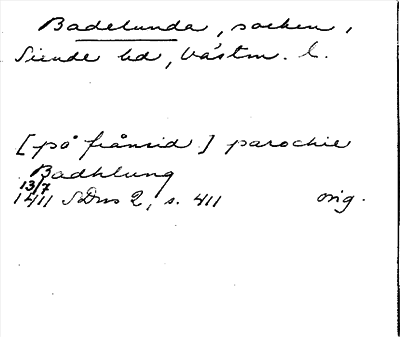 Badelunda, socken,
Siende hd, Västm. l.
[på frånsid.] parochie
Badhlung
13/7
1411 SDns 2, s. 411 orig.